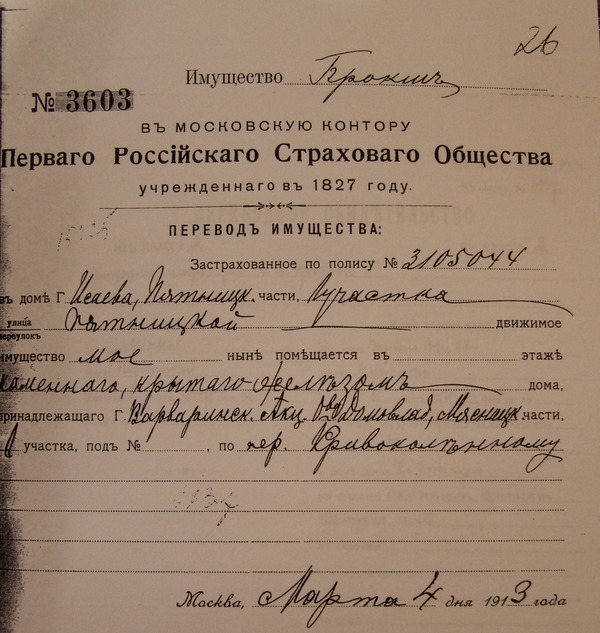 26
Имущество
№ 3603
ВЪ МОСКОВСКУЮ КОНТОРУ
Перваго Россійскаго Страховаго Общества
учрежденнаго въ 1827 году.
ПЕРЕВОДЪ ИМУЩЕСТВА:
Застрахованное по полису № 3105044
въ домѣ Г Исаева, Пятницк. части, участка
улица Пятницкой движимое
переулокъ
имущество мое нынѣ помѣщается въ этажѣ
каменнаго, крытаго желѣзомъ дома,
принадлежащаго Г. Варваринск. Акц. О-ва Домовлад., Мясницк. части,
1 участка, подъ № , по пер. Кривоколѣнному
Москва, Марта 4 дня 1913 года